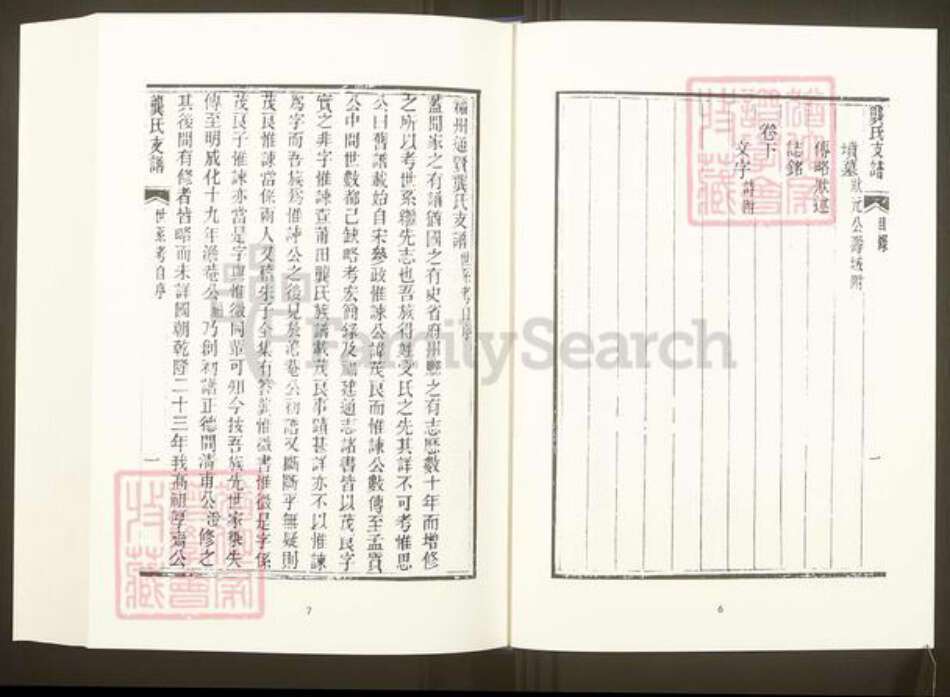 龔氏支譜
目錄
一
墳墓 狀元公灣域附
傳略 狀述
誌銘
卷下
文字 詩附
6
福州通賢龔氏支譜 世系考自序
蓋聞家之有譜猶國之有史省府州縣之有志歷數十年而增修
之所以考世系繼先志也吾族得姓文氏之先其詳不可考惟思
公曰舊譜載始自宋參政惟諫公諱茂良而惟諫公數傳至孟實
公中間世數都已缺略考宏簡錄及福建通志諸書皆以茂良字
實之非字惟諫查莆田龔氏族譜載茂良事蹟甚詳亦不以惟諫
為字而吾族為惟諫公之後見於滄菴公初譜又斷斷乎無疑則
茂良惟諫當係兩人又於朱子全集有答龔惟微書惟微是字係
茂良子惟諫亦當是字與惟微同輩可知今按吾族先世家乘失
傳至明成化十九年滄菴公乃創初譜正德間清甫公澄修之
其後間有修者皆略而未詳國朝乾隆二十三年我高祖學齋公
龔氏支譜
世系考自序
一
7
FamilySearch